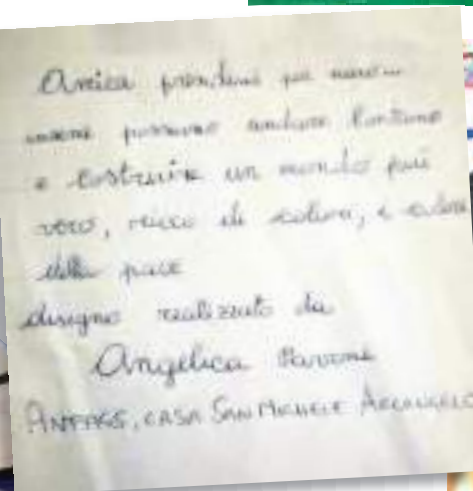 Amica prendimi per mano...
insieme possiamo andare lontano
e costruire un mondo più
vero, ricco di colori, i colori
della pace
disegno realizzato da
Angelica Pavone
ANFFAS, CASA SAN MICHELE ARCANGELO